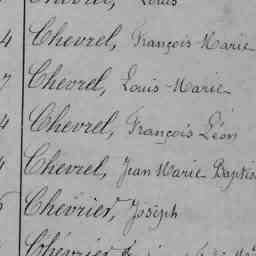 Chevrel, Louis
4 Chevrel, François Marie
7 Chevrel, Louis Marie
4 Chevrel, François Léon
Chevrel, Jean Marie Baptis
Chevrier, Joseph